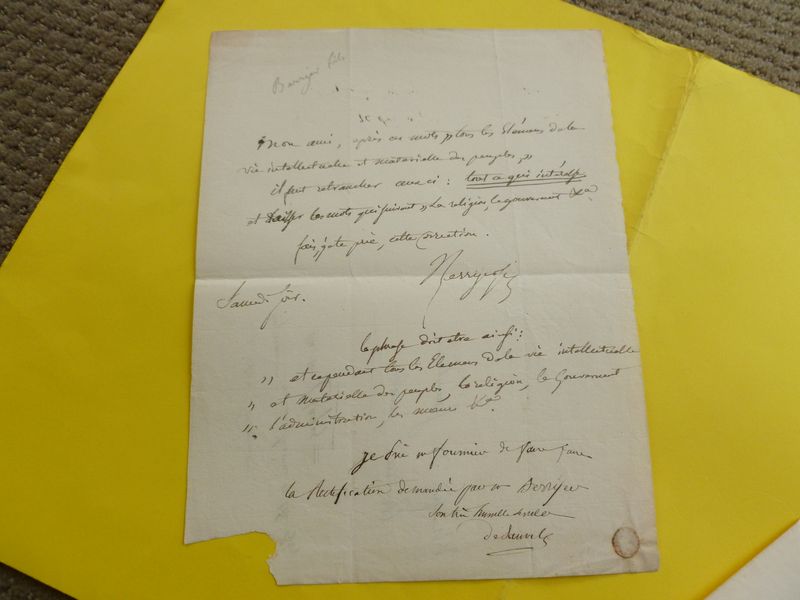 Berryer fils
Mon ami, après ces mots "tous les Elémens de la
vie intellectuelle et materielle des peuples"
il faut retrancher ceux ci: tout ce qui intéresse
et laisser les mots qui suivent "La religion, le gouvernement &a
fais, je te prie, cette correction.
Berryer fils
Samedi soir.
la phrase doit etre ainsi:
" et cependant tous les Elemens de la vie intellectuelle
" et materielle des peuples, la religion, le Gouvernement
" l'administration, les moeurs &a
je prie mr fournier de faire faire
la Rectification demandée par mr Berryer
Son très humble